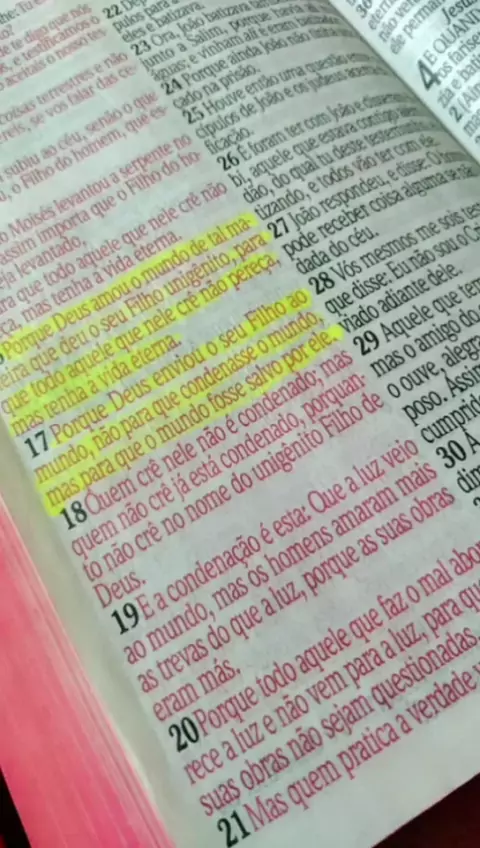 te digo que nós
e testificamos o
aceitais o nosso tes-
coisas terrestres, e não
reis, se vos falar das ce-
subiu ao céu, senão o que
o Filho do homem, que es-
Moisés levantou a serpente no
assim importa que o Filho do ho-
levantado,
para que todo aquele que nele crê não
mas tenha a vida eterna.
Porque Deus amou o mundo de tal ma-
neira que deu o seu Filho unigênito, para
que todo aquele que nele crê não pereça,
mas tenha a vida eterna.
17 Porque Deus enviou o seu Filho ao
mundo, não para que condenasse o mundo,
mas para que o mundo fosse salvo por ele.
18 Quem crê nele não é condenado; mas
quem não crê já está condenado, porquan-
to não crê no nome do unigênito Filho de
Deus.
19 E a condenação é esta: Que a luz veio
ao mundo, mas os homens amaram mais
as trevas do que a luz, porque as suas obras
eram más.
20 Porque todo aquele que faz o mal abor-
rece a luz e não vem para a luz, para que
suas obras não sejam questionadas.
21 Mas quem pratica a verdade
22
e batizava.
23 Ora, João batizava também
junto a Salim, porque havia
águas; e vinham ali e eram batizados
24 Porque ainda João não
cado na prisão.
25 Houve então uma questão
cípulos de João e os judeus acerca
ficação.
26 E foram ter com João e disseram
bi, aquele que estava contigo além
dão, do qual tu deste testemunho
tizando, e todos vão ter com ele.
27 João respondeu, e disse: O homem
pode receber coisa alguma se não
dada do céu.
28 Vós mesmos me sois
que disse: Eu não sou o
viado adiante dele.
29 Aquele que tem
mas o amigo do
o ouve, alegra
poso. Assim
cumprid
30 A
dim
4 E QUANT
os faris
zia e bati
2 (Ain